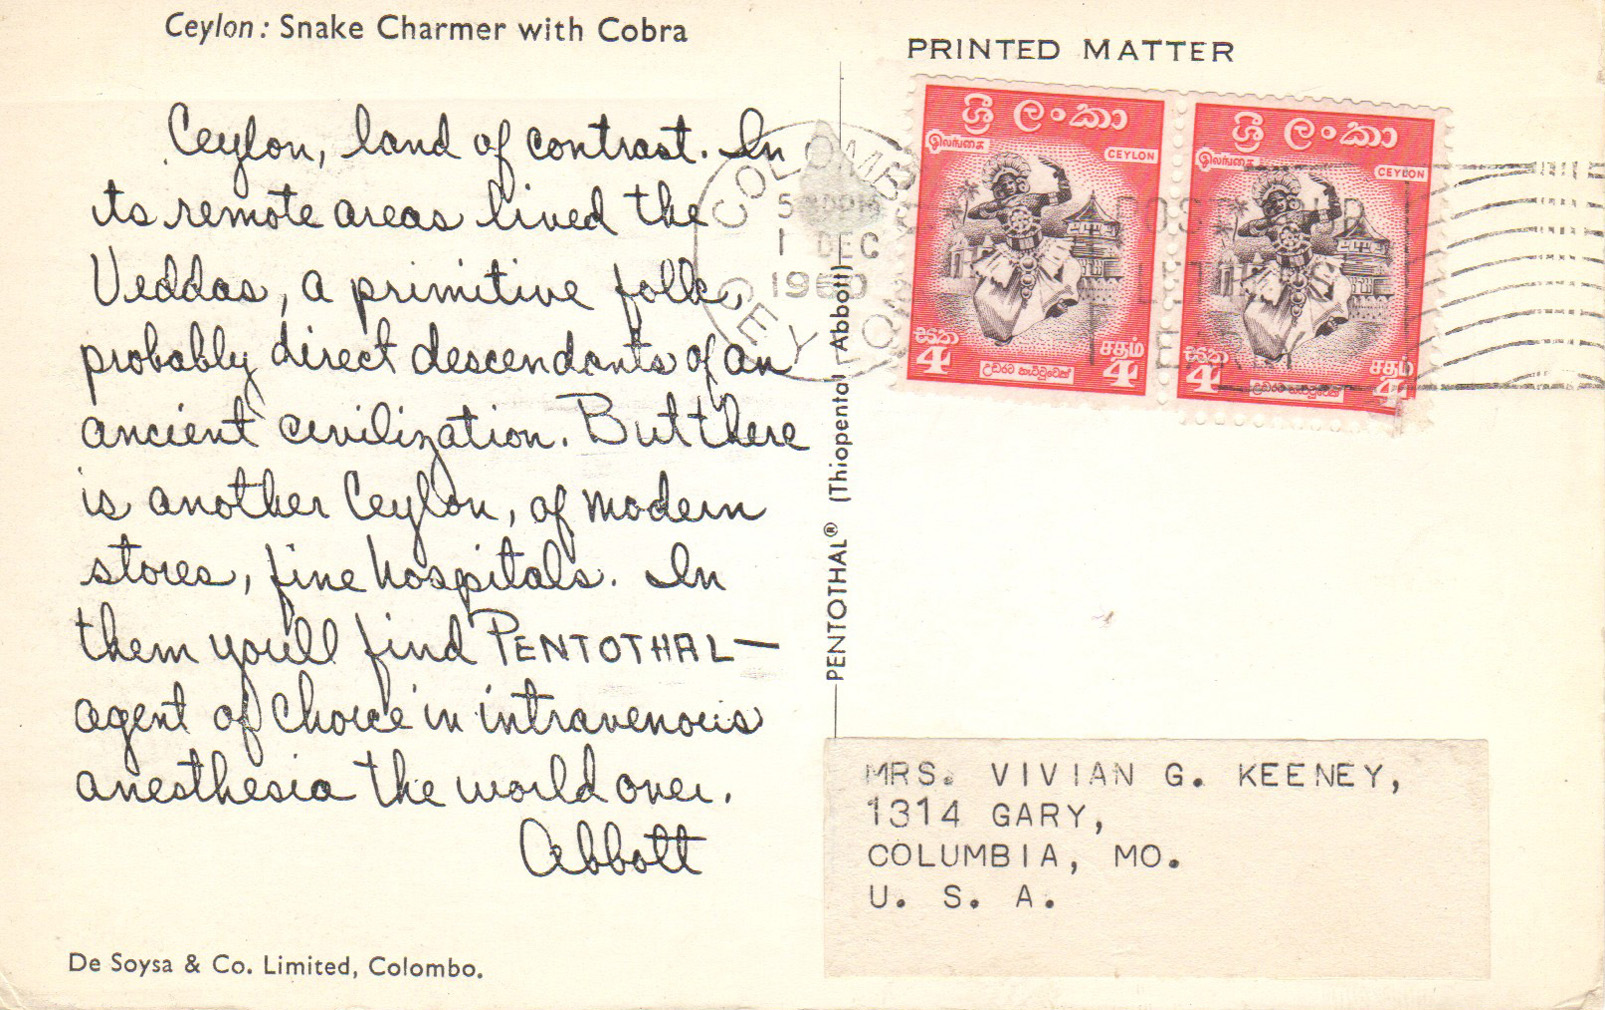 Ceylon: Snake Charmer with Cobra
Ceylon, land of contrast. In
its remote areas lived the
Veddas, a primitive folk,
probably direct descendants of an
ancient civilization. But there
is another Ceylon, of modern
stores, fine hospitals. In
them you'll find PENTOTHAL—
agent of choice in intravenous
anesthesia the world over.
Abbott
De Soysa & Co. Limited, Colombo.
PENTOTHAL® (Thiopental Abbott)
PRINTED MATTER
COLOMBO
1 DEC
1960
CEYLON
ශ්‍රී ලංකා
இலங்கை
CEYLON
සත සதம்
4 4
උඩරට නැට්ටුවෙක්
ශ්‍රී ලංකා
இலங்கை
CEYLON
සත සதம்
4 4
උඩරට නැට්ටුවෙක්
POST YOUR
LETTERS
EARLY
MRS. VIVIAN G. KEENEY,
1314 GARY,
COLUMBIA, MO.
U. S. A.